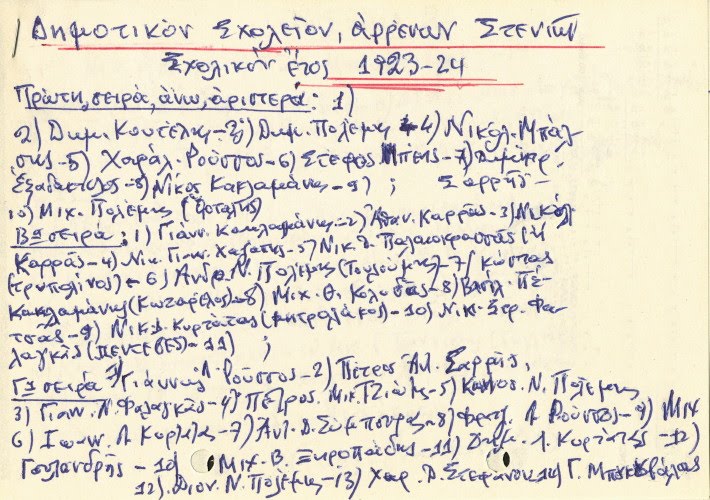 Δημοτικὸν Σχολεῖον, ἀρρένων Στενιῶν
Σχολικὸν ἔτος 1923-24
Πρώτη, σειρά, ἄνω, ἀριστερά: 1)
2) Δημ. Κουτέλης - 3) Δημ. Πολέμης 4) Νικόλ. Μπάλ-
σης - 5) Χαράλ. Ρούσσος - 6) Στέφος Μπέης - 7) Δημητρ.
Εξαδάκτυλος - 8) Νίκος Κακλαμάνης - 9) ; Σαρρῆς -
10) Μιχ. Πολέμης
Βα σειρά: 1) Γιάνν. Κακλαμάνης - 2) Ἀθαν. Καρρᾶς - 3) Νικόλ
Καρρᾶς - 4) Νικ. Γιαν. Χαζάπης - 5) Νικ. Δ. Παλαιοκρασσᾶς (
(τριπολίνος) - 6) Ἀνδρ. Ν. Πολέμης - 7) Κώστας
Κακλαμάνης (Κωταρέλος) Μιχ. Θ. Κολυδᾶς - 8) Βασίλ. Πέ-
τσᾶς - 9) Νικ. Δ. Κυρτάτας - 10) Νικ. Στρ. Φα-
λαγκᾶς (ΠΕΝΤΕΒΕΣ) - 11) ;
Γα σειρά 1) Γιάννης Λ. Ρούσσος - 2) Πέτρος Ἀλ. Σαρρῆς,
3) Γιάνν. Ν. Φαλαγκᾶς - 4) Πέτρος Μικ. Τζιώτης - 5) Κων/νος. Ν. Πολέμης
6) Ἰωάν. Λ. Κορτάτας - 7) Ἀντ. Δ. Σύμπουρας - 8) Φραγκ. Λ. Ρούσσος - 9) Μιχ
Γουλανδρῆς - 10) Μιχ. Β. Ξηροπαΐδης - 11) Δημ. Λ. Κυρτάτας - 12)
12) Διον. Ν. Πολέμης - 13) Χαρ. Δ. Στεφάνου 14) Γ.